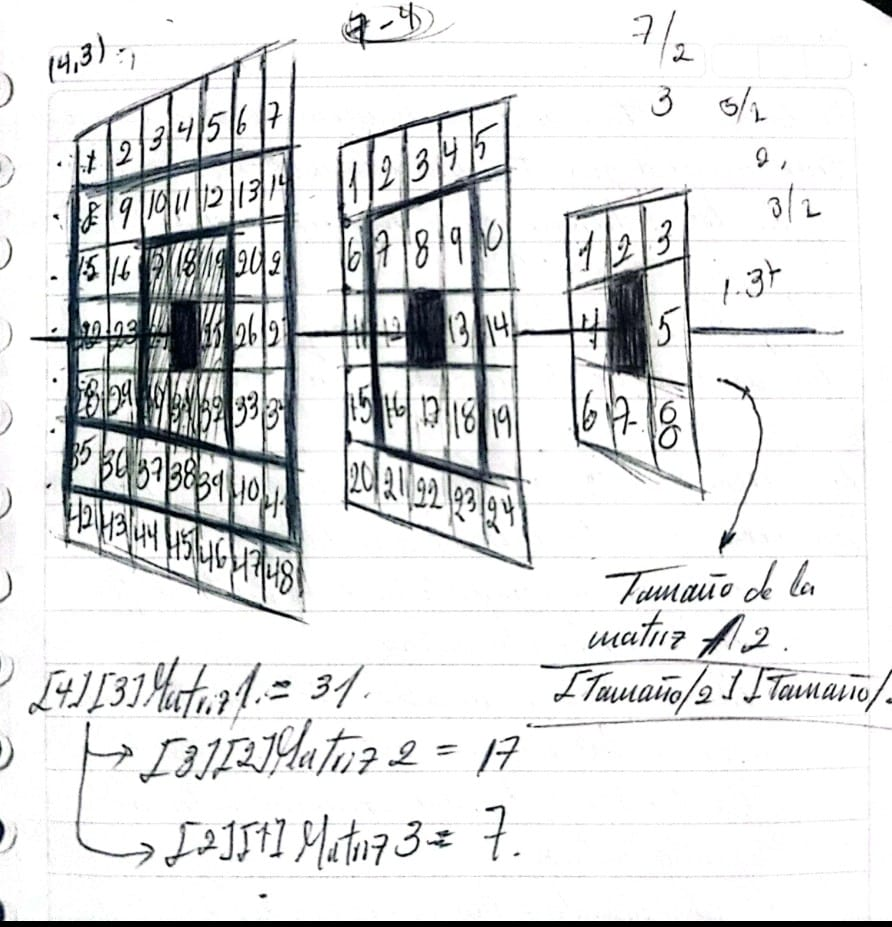 (4,3)
7-4
7/2
3
5/2
2,
3/2
1.
1 2 3 4 5 6 7
8 9 10 11 12 13 14
15 16 17 18 19 20 2
22 23 25 26 2
28 29 31 32 33 3
35 36 37 38 39 40 4
42 43 44 45 46 47 48
1 2 3 4 5
6 7 8 9 0
11 12 13 14
15 16 17 18 19
20 21 22 23 24
1 2 3
4 5
6 7 8
Tamaño de la
matriz / 2.
[Tamaño/2][Tamaño/
[4][3] Matriz 1. = 31.
[3][2] Matriz 2 = 17
[2][1] Matriz 3 = 7.